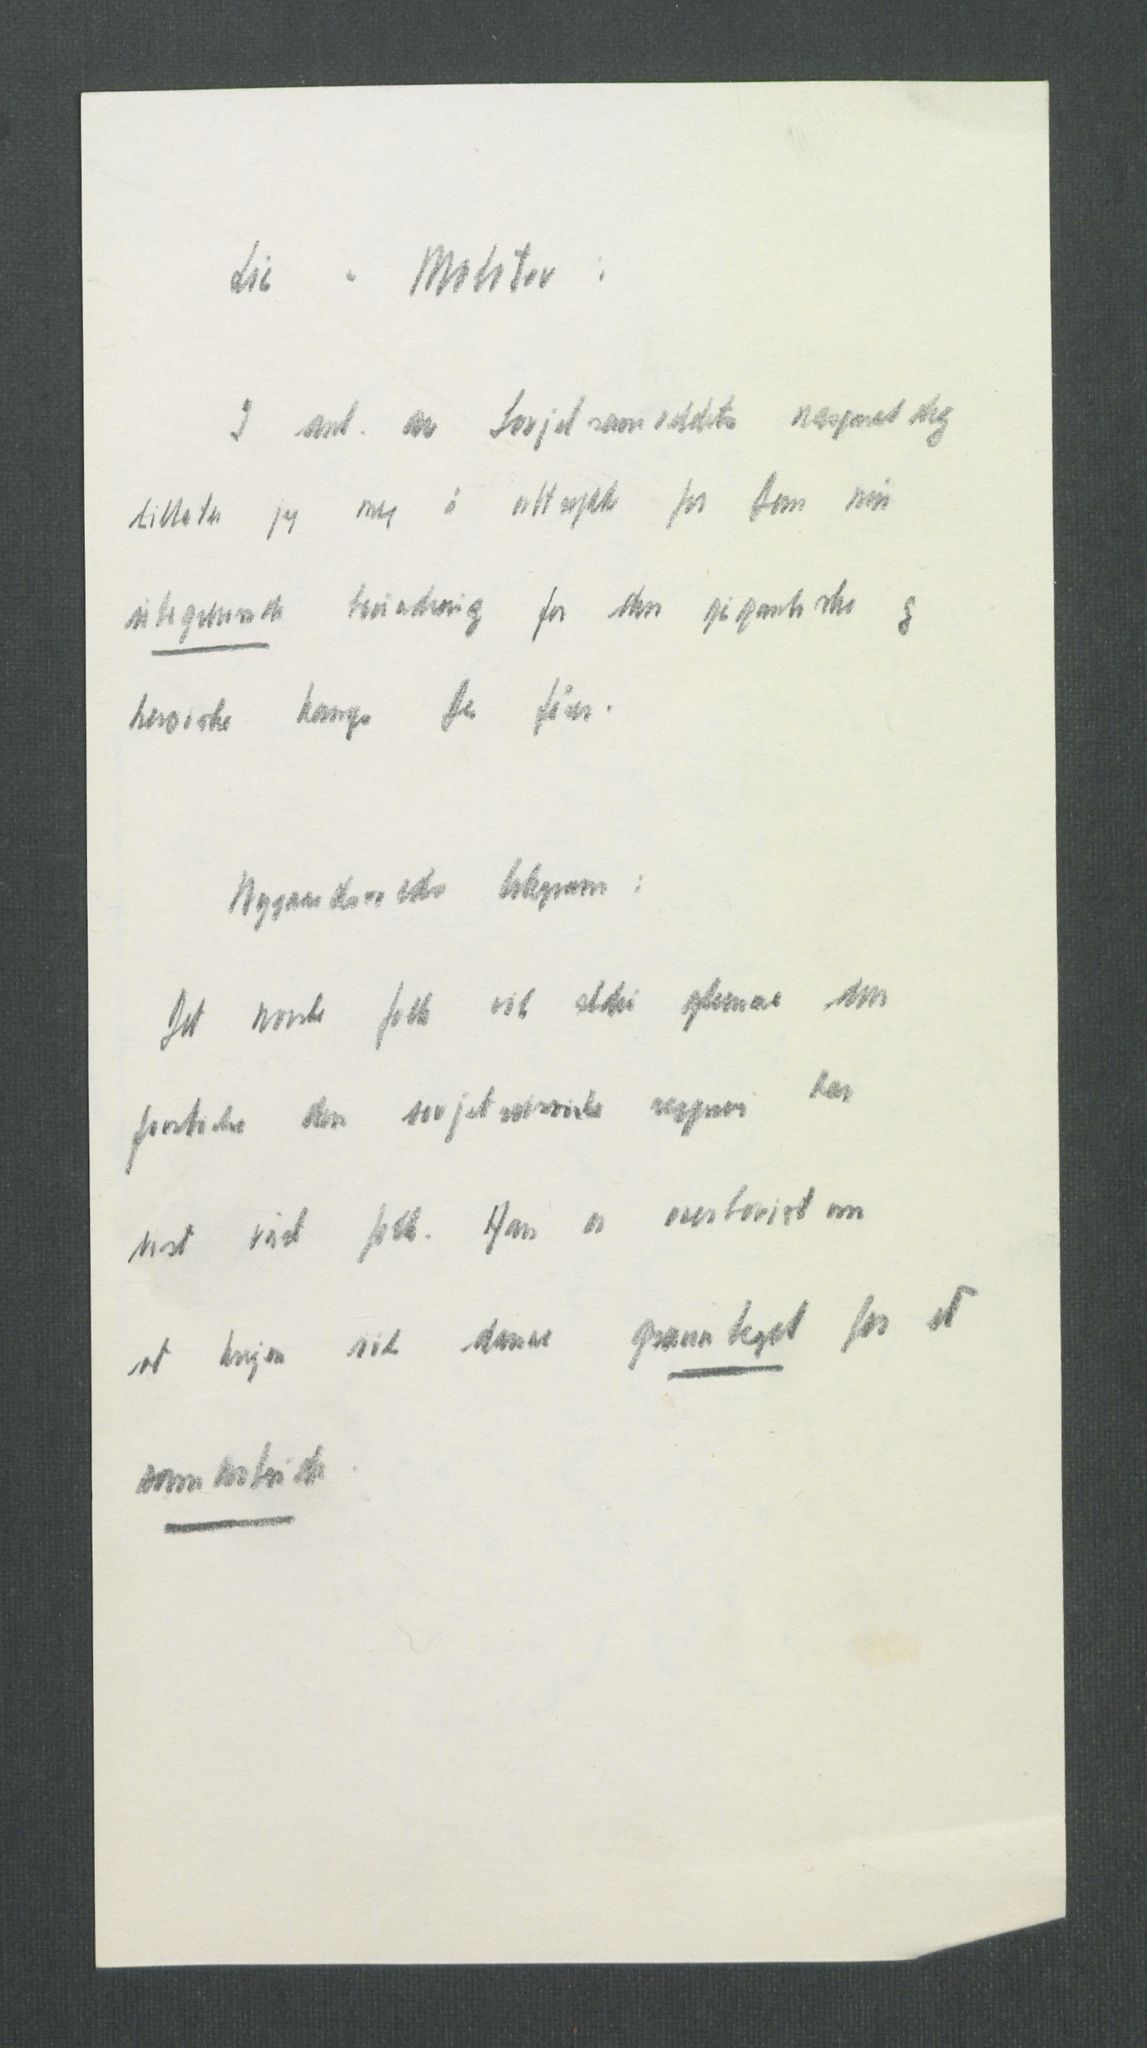 Lie - Molotov:
I anl. av Sovjetsamveldets nasjonaldag
tillater jeg meg å uttrykke for Dem min
ubegrensede beundring for den gigantiske og
heroiske kamp De fører.
Nygaardsvolds telegram:
Det norske folk vil aldri glemme den
forståelse den sovjetrussiske regjering har
vist vårt folk. Han er overbevist om
at krigen vil danne grunnlaget for et